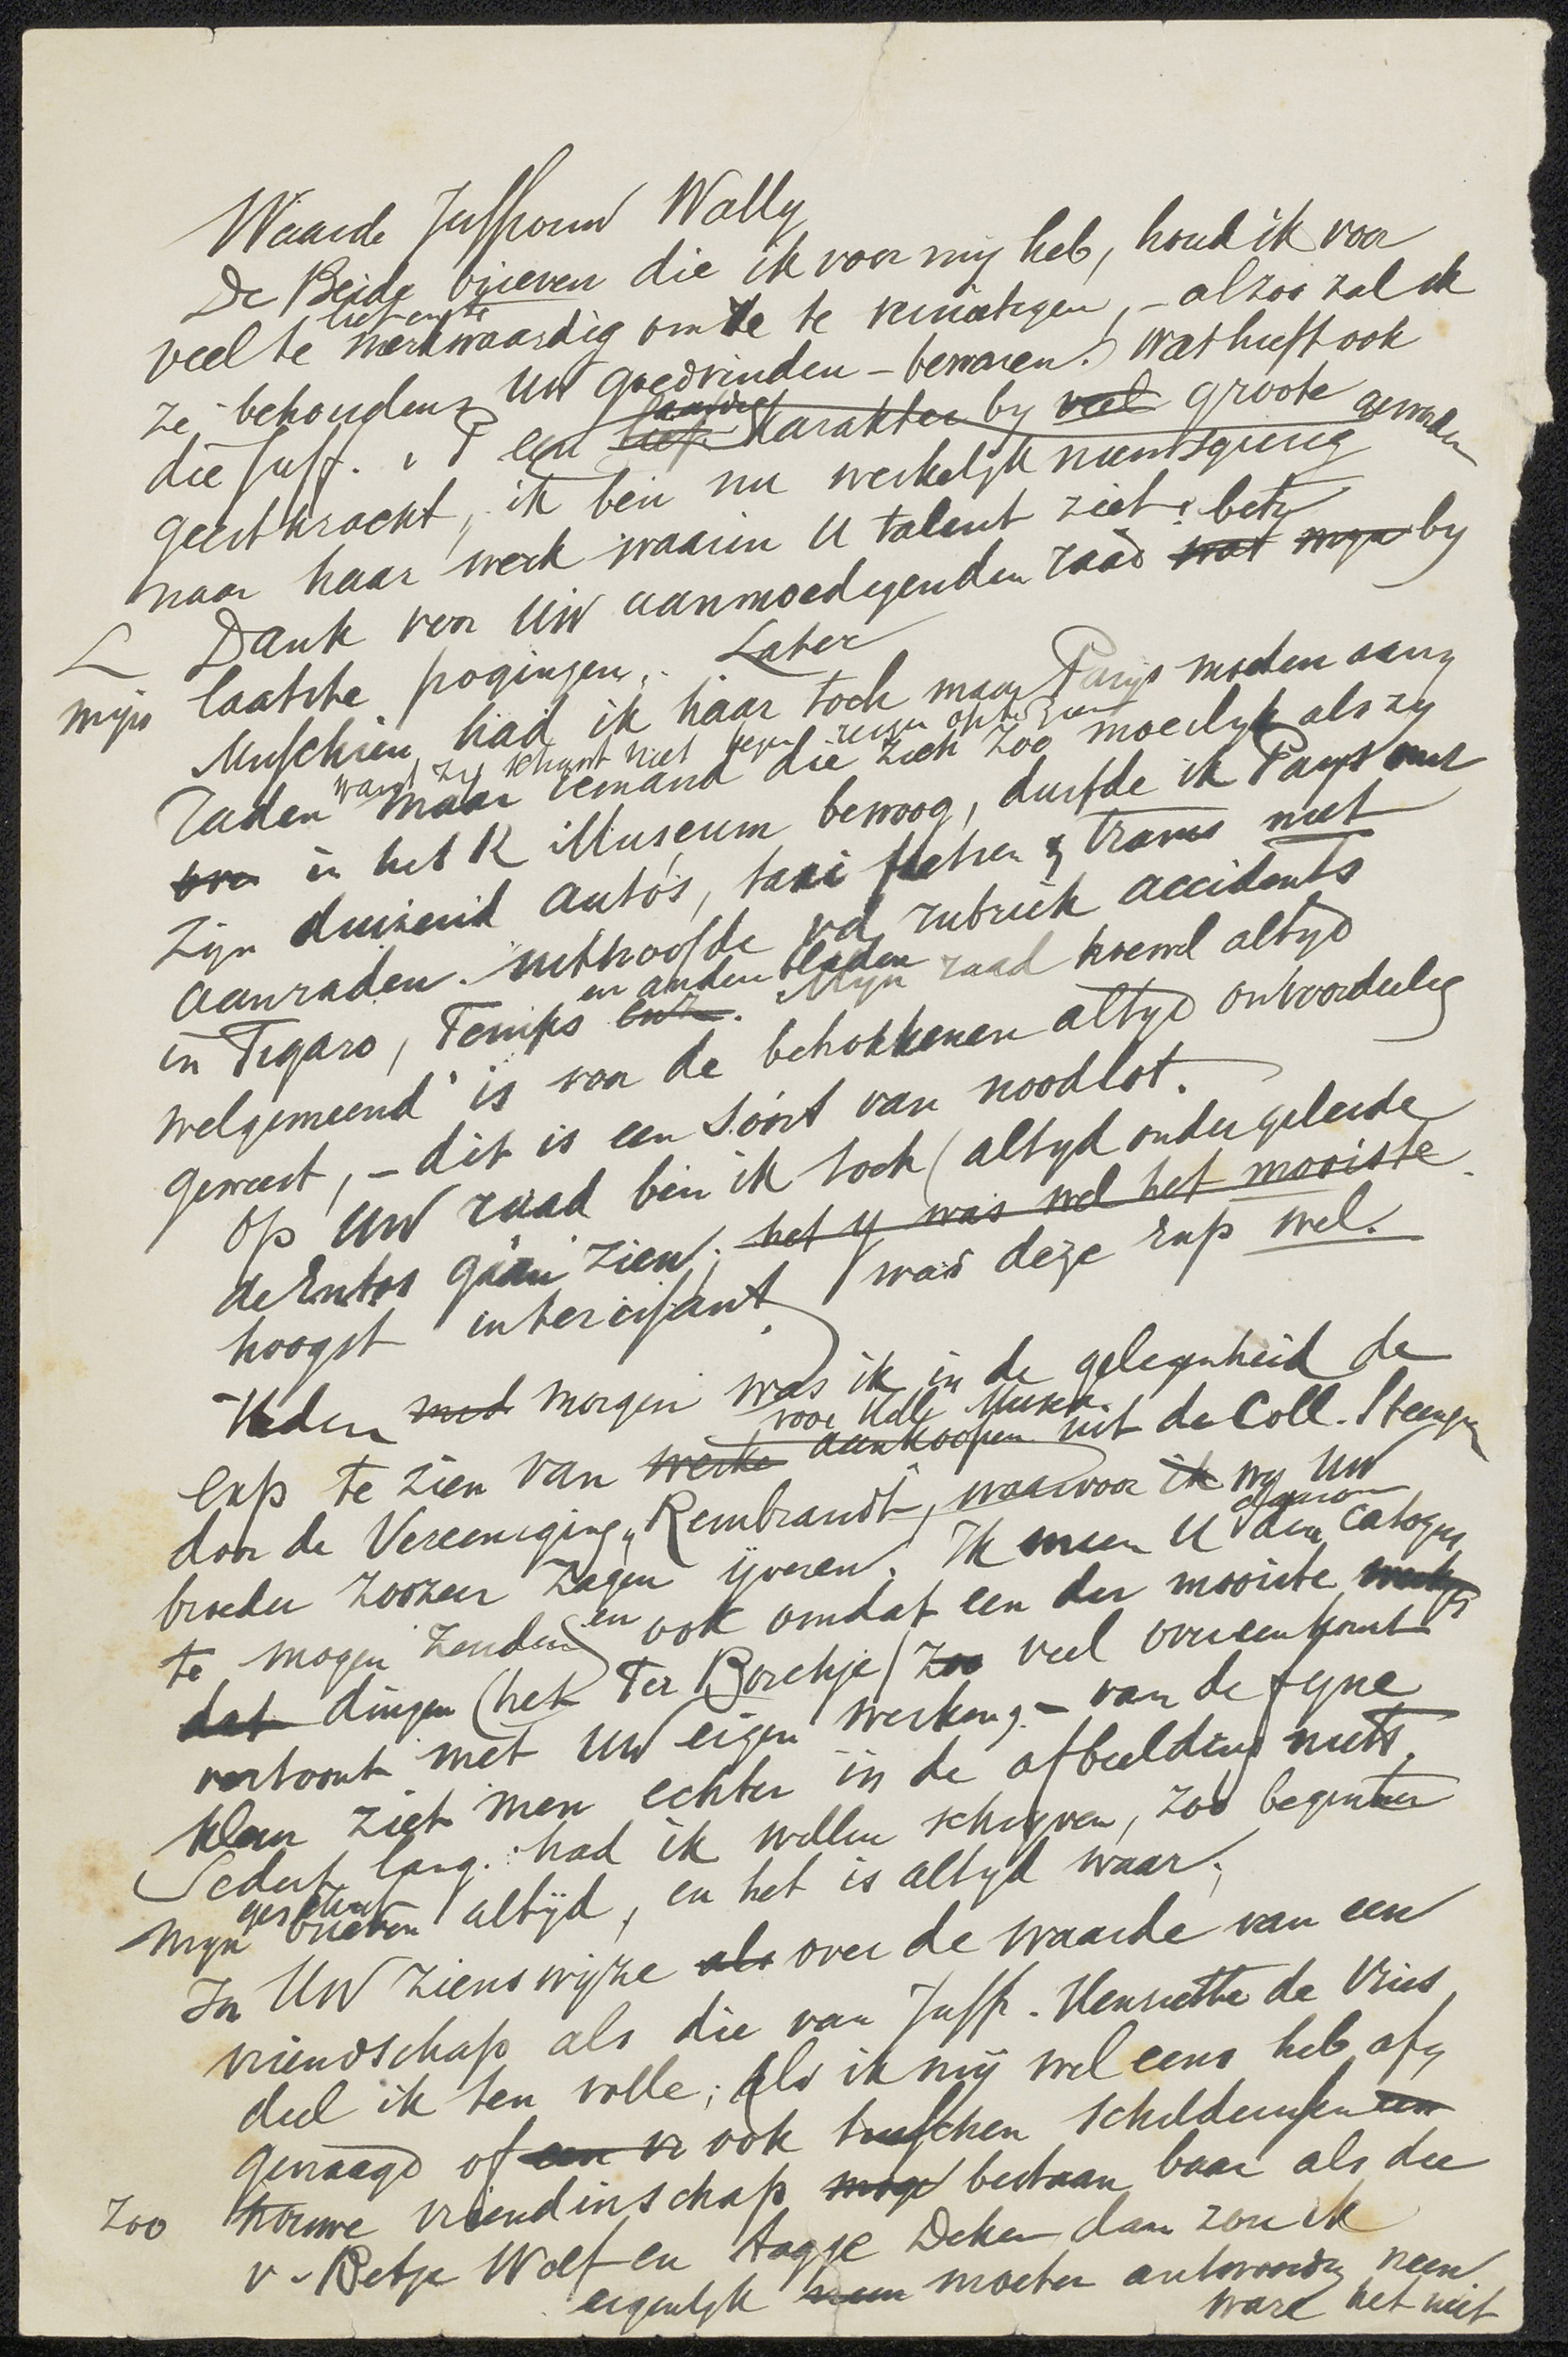 Waarde Juffrouw Wally
De Beide brieven die ik voor mij heb, houd ik voor
veel te merkwaardig om ze te vernietigen, – alzoo zal ik
ze behoudens Uw goedvinden – bewaren. Wat heeft ook
die Juff. P een karakter by veel groote
geestkracht, ik ben nu werkelijk nieuwsgierig geworden
naar haar werk waarin U talent ziet.
Dank voor Uw aanmoedigenden raad wat mijn by
mijn laatste pogingen. Later
Misschien had ik haar toch maar Parijs moeten aan
raden want zij schijnt niet tegen reizen op te zien maar iemand die zich zoo moeilijk als zy
in het R Museum bewoog, durfde ik Parijs met
zijn duizend auto's, taxi fietsen & trams niet
aanraden. uithoofde vd rubriek accidents
in Figaro, Temps enz. en andere bladen Mijn raad hoewel altyd
welgemeend is voor de betrokkenen altyd onvoordeelig
geweest, – dit is een soort van noodlot.
Op Uw raad ben ik toch (altyd onder geleide
de Entos gaan zien; het y was wel het mooiste
hoogst interessant was deze Exp wel.
Heden morgen was ik in de gelegenheid de
exp te zien van werke aankoopen voor Holl. Musea uit de Coll. Steengr
door de Vereeniging „Rembrandt, waarvoor ik wy Uw
broeder zoozeer zagen ijveren. Ik meen U daarom den Catogus
te mogen zenden en ook omdat een der mooiste
dat dingen (het Ter Borchje) zoo veel overeenkomst
vertoont met Uw eigen werken, – van de fyne
kleur ziet men echter in de afbeelding niets.
Sedert lang: had ik willen schryven, zoo beginnen
mijn brieven altijd, en het is altyd waar;
In Uw zienswijze als over de waarde van een
vriendschap als die van Juffr. Henriette de Vries
deel ik ten volle; als ik mij wel eens heb af
gevraagd of een vr ook tusschen schilderessen een
zoo trouwe vriendinschap moge bestaan baar als die
v. Betje Wolf en Aagje Deken dan zou ik
eigenlyk neen moeten antwoorden neen
ware het niet